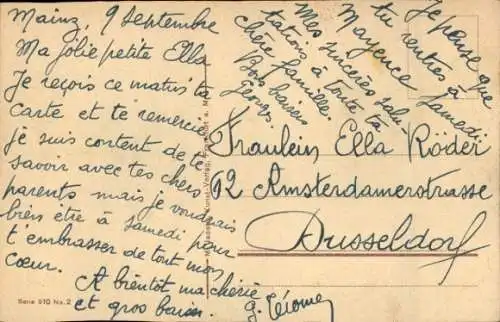 Mainz, 9 Septembre
Ma jolie petite Ella
Je reçois ce matin ta
carte et te remercie
je suis content de te
savoir avec tes chers
parents mais je voudrais
bien être à samedi pour
t'embrasser de tout mon
cœur.
A bientôt ma chérie
et gros baiser.
G. Jérome
Je pense que
tu rentres à
Mayence samedi
Mes sincères salu-
tations à toute ta
chère famille.
Bons baisers
Fräulein Ella Röder
62 Amsterdamerstrasse
Dusseldorf
Serie 910 No. 2